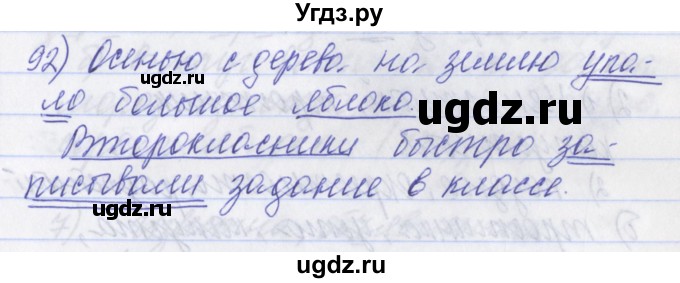 Угдз.ру
92) Осенью с дерева на землю упа-
ло большое яблоко.
Второкласники быстро за-
писывали задание в классе.
©ugdz.ru
ugdz.ru
ugdz.ru
ugdz.ru
ugdz.ru